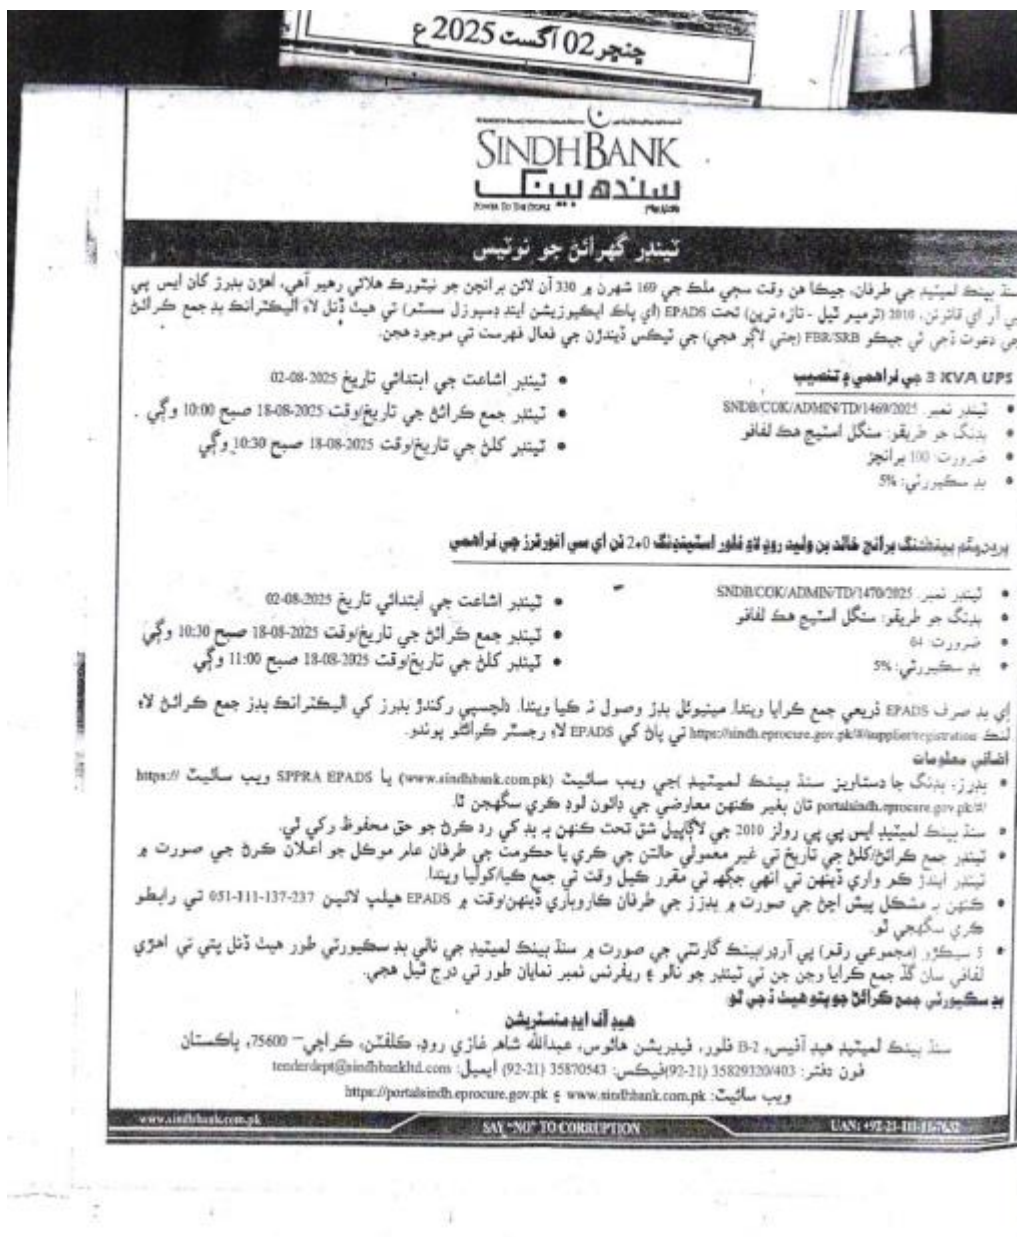 ڇنڇر 02 آگسٽ 2025 ع
SINDHBANK
سنڌ بينڪ
POWER TO THE PEOPLE
ٽينڊر گهرائڻ جو نوٽيس
سنڌ بينڪ لميٽيڊ جي طرفان، جيڪا هن وقت سڄي ملڪ جي 169 شهرن ۾ 330 آن لائن برانچن جو نيٽورڪ هلائي رهيو آهي، اهڙن بڊرز کان ايس پي
پي آر اي قانونن، 2010 (ترميم ٿيل - تازه ترين) تحت EPADS (اي پاڪ ايڪيوزيشن اينڊ ڊسپوزل سسٽم) تي هيٺ ڏنل لاءِ اليڪٽرانڪ بڊ جمع ڪرائڻ
جي دعوت ڏجي ٿي جيڪو FBR/SRB (جتي لاڳو هجي) جي ٽيڪس ڏيندڙن جي فعال فهرست تي موجود هجن.
3 KVA UPS جي فراهمي ۽ تنصيب
• ٽينڊر نمبر: SNDB/COK/ADMIN/TD/1469/2025
• بڊنگ جو طريقو: سنگل اسٽيج هڪ لفافو
• ضرورت: 100 برانچز
• بڊ سڪيورٽي: 5%
• ٽينڊر اشاعت جي ابتدائي تاريخ 02-08-2025
• ٽينڊر جمع ڪرائڻ جي تاريخ/وقت 18-08-2025 صبح 10:00 وڳي .
• ٽينڊر کلڻ جي تاريخ/وقت 18-08-2025 صبح 10:30 وڳي
بينڪنگ برانچ خالد بن وليد روڊ لاءِ فلور اسٽينڊنگ 2.0 ٽن اي سي انورٽرز جي فراهمي
• ٽينڊر نمبر: SNDB/COK/ADMIN/TD/1470/2025
• بڊنگ جو طريقو: سنگل اسٽيج هڪ لفافو
• ضرورت: 04
• بڊ سڪيورٽي: 5%
• ٽينڊر اشاعت جي ابتدائي تاريخ 02-08-2025
• ٽينڊر جمع ڪرائڻ جي تاريخ/وقت 18-08-2025 صبح 10:30 وڳي
• ٽينڊر کلڻ جي تاريخ/وقت 18-08-2025 صبح 11:00 وڳي
اِي بڊ صرف EPADS ذريعي جمع ڪرايا ويندا. مينيوئل بڊز وصول نه ڪيا ويندا. دلچسپي رکندڙ بڊرز کي اليڪٽرانڪ بڊز جمع ڪرائڻ لاءِ
لنڪ https://sindh.eprocure.gov.pk/#/supplier/registration تي پاڻ کي EPADS لاءِ رجسٽر ڪرائڻو پوندو.
اضافي معلومات
• بڊرز، بڊنگ جا دستاويز سنڌ بينڪ لميٽيڊ )جي ويب سائيٽ (www.sindhbank.com.pk) يا SPPRA EPADS ويب سائيٽ https://
portalsindh.eprocure.gov.pk/#/ تان بغير ڪنهن معاوضي جي ڊائون لوڊ ڪري سگهجن ٿا.
• سنڌ بينڪ لميٽيڊ ايس پي پي رولز 2010 جي لاڳاپيل شق تحت ڪنهن به بڊ کي رد ڪرڻ جو حق محفوظ رکي ٿي.
• ٽينڊر جمع ڪرائڻ/کلڻ جي تاريخ تي غير معمولي حالتن جي ڪري يا حڪومت جي طرفان عام موڪل جو اعلان ڪرڻ جي صورت ۾
ٽينڊر ايندڙ ڪم واري ڏينهن تي انهي جڳهه تي مقرر ڪيل وقت تي جمع ڪيا/کوليا ويندا.
• ڪنهن به مشڪل پيش اچڻ جي صورت ۾ بڊرز جي طرفان ڪاروباري ڏينهن/وقت ۾ EPADS هيلپ لائين 051-111-137-237 تي رابطو
ڪري سگهجي ٿو.
• 5 سيڪڙو (مجموعي رقم) پي آرڊر/بينڪ گارنٽي جي صورت ۾ سنڌ بينڪ لميٽيڊ جي نالي بڊ سڪيورٽي طور هيٺ ڏنل پتي تي اهڙي
لفافي سان گڏ جمع ڪرايا وڃن جن تي ٽينڊر جو نالو ۽ ريفرنس نمبر نمايان طور تي درج ٿيل هجي.
بڊ سڪيورٽي جمع ڪرائڻ جو پتو هيٺ ڏجي ٿو
هيڊ آف ايڊمنسٽريشن
سنڌ بينڪ لميٽيڊ هيڊ آفيس، B-2 فلور، فيڊريشن هائوس، عبدالله شاهه غازي روڊ، ڪلفٽن، ڪراچي– 75600، پاڪستان
فون دفتر: 35829320/403 (92-21)فيڪس: 35870543 (92-21) ايميل: tenderdept@sindhbankltd.com
ويب سائيٽ: www.sindhbank.com.pk ۽ https://portalsindh.eprocure.gov.pk
www.sindhbank.com.pk
SAY "NO" TO CORRUPTION
UAN: +92-21-111-11-7632